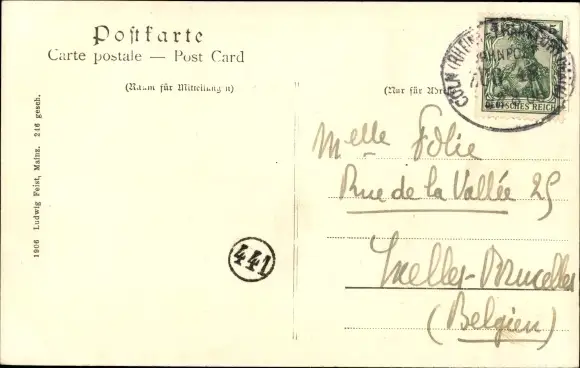 Postkarte
Carte postale — Post Card
(Raum für Mitteilungen)
(Nur für
5
DEUTSCHES REICH
CÖLN (RHEIN)
BAHNPOST
ZUG
Melle Folie
Rue de la Vallée 25
Ixelles-Bruxelles
(Belgien)
441
1906 Ludwig Feist, Mainz. 246 gesch.